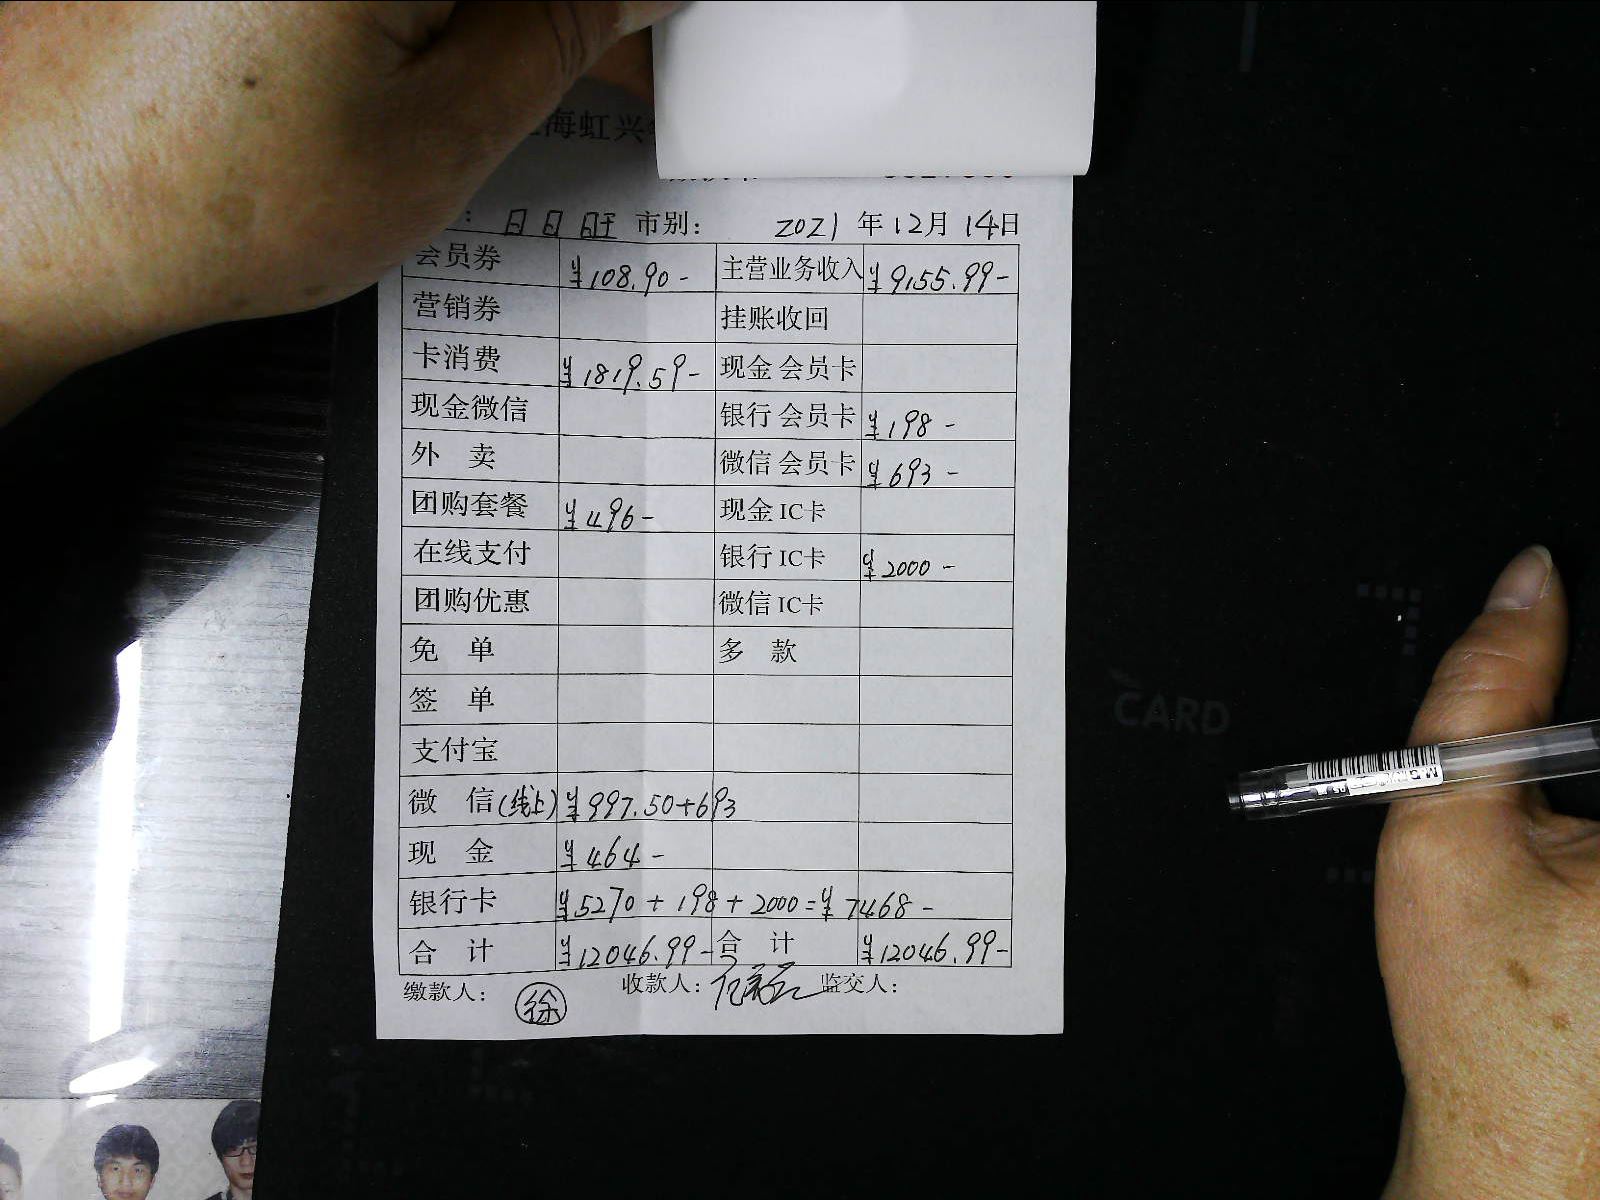 海虹兴
: 日日旺 市别: 2021年12月14日
会员券 ¥108.90- 主营业务收入 ¥9155.99-
营销券 挂账收回
卡消费 ¥1819.59- 现金会员卡
现金微信 银行会员卡 ¥198-
外 卖 微信会员卡 ¥693-
团购套餐 ¥496- 现金IC卡
在线支付 银行IC卡 ¥2000-
团购优惠 微信IC卡
免 单 多 款
签 单
支付宝
微 信(线上) ¥997.50+693
现 金 ¥464-
银行卡 ¥5270+198+2000=¥7468-
合 计 ¥12046.99- 合 计 ¥12046.99-
缴款人: 徐 收款人: 监交人:
CARD
M&G